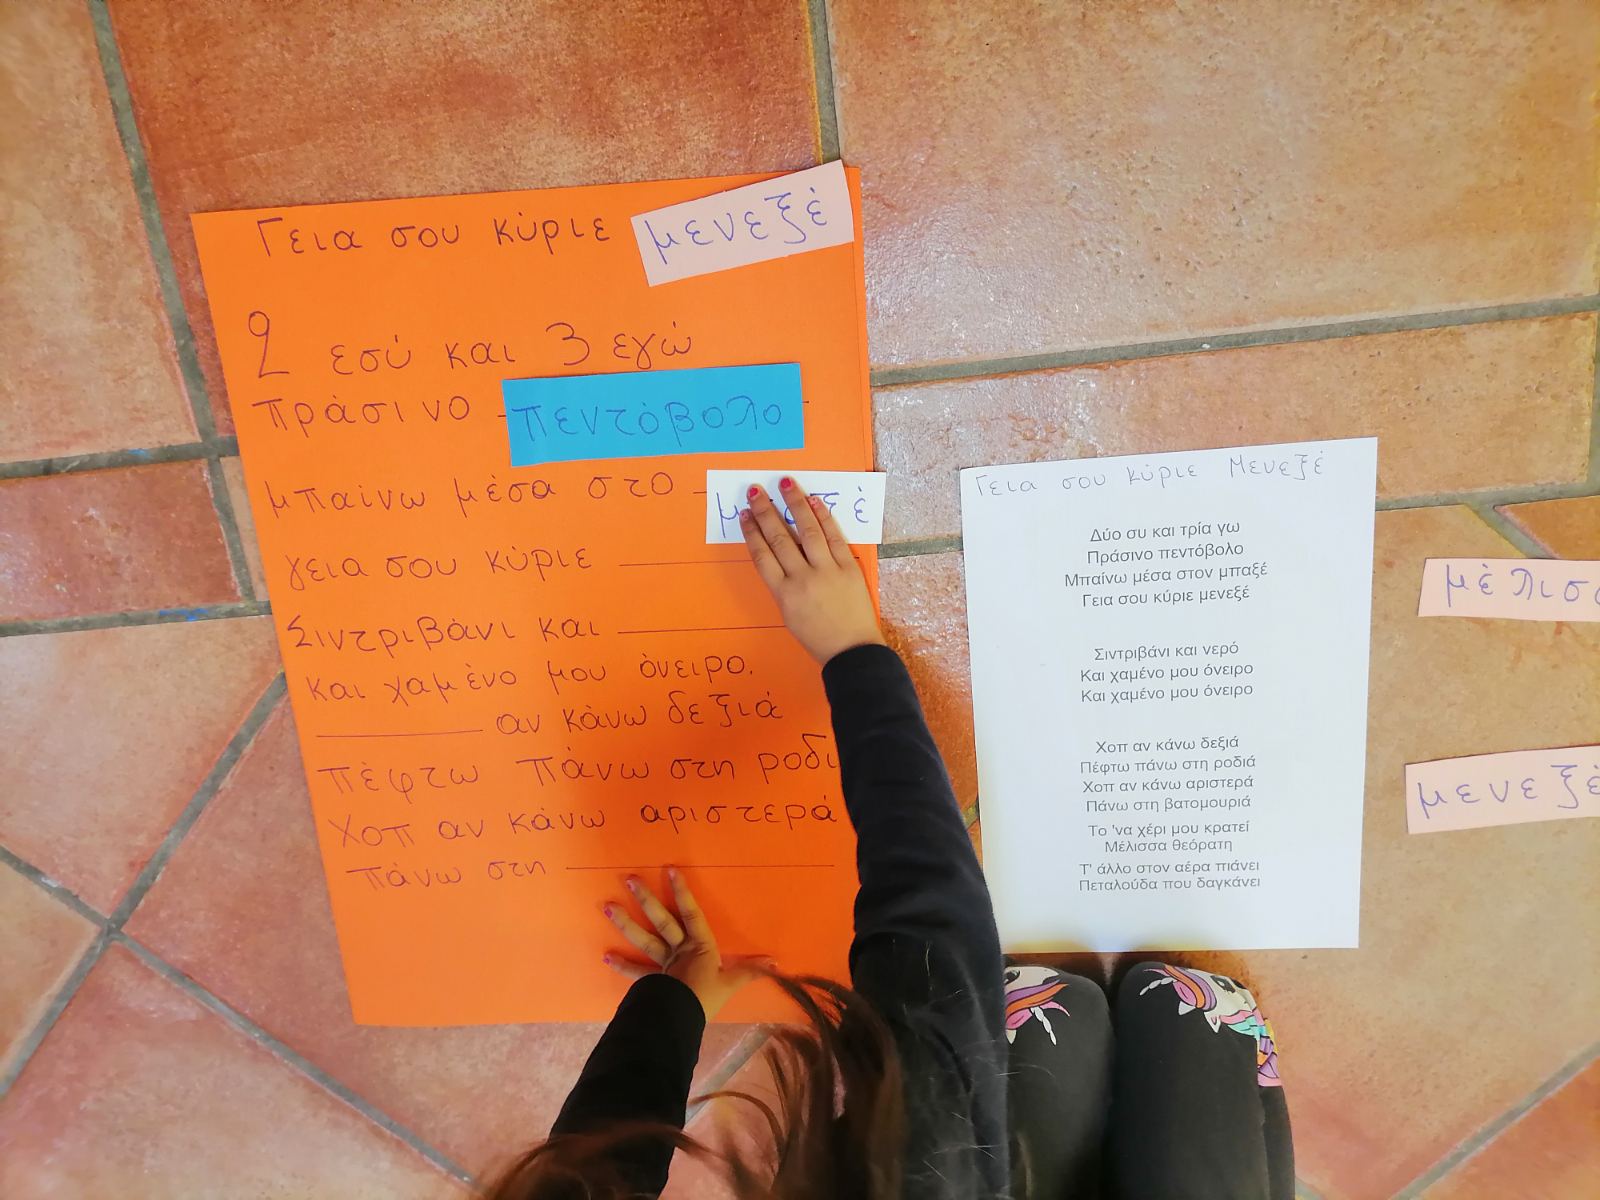 Γεια σου κύριε μενεξέ
2 εσύ και 3 εγώ
πράσινο πεντόβολο
μπαίνω μέσα στο
γεια σου κύριε
Σιντριβάνι και
και χαμένο μου όνειρο.
αν κάνω δεξιά
πέφτω πάνω στη
Χοπ αν κάνω αριστερά
πάνω στη
Γεια σου κύριε Μενεξέ
Δύο συ και τρία γω
Πράσινο πεντόβολο
Μπαίνω μέσα στον μπαξέ
Γεια σου κύριε μενεξέ
Σιντριβάνι και νερό
Και χαμένο μου όνειρο
Και χαμένο μου όνειρο
Χοπ αν κάνω δεξιά
Πέφτω πάνω στη ροδιά
Χοπ αν κάνω αριστερά
Πάνω στη βατομουριά
Το 'να χέρι μου κρατεί
Μέλισσα θεόρατη
Τ' άλλο στον αέρα πιάνει
Πεταλούδα που δαγκάνει
μενεξέ